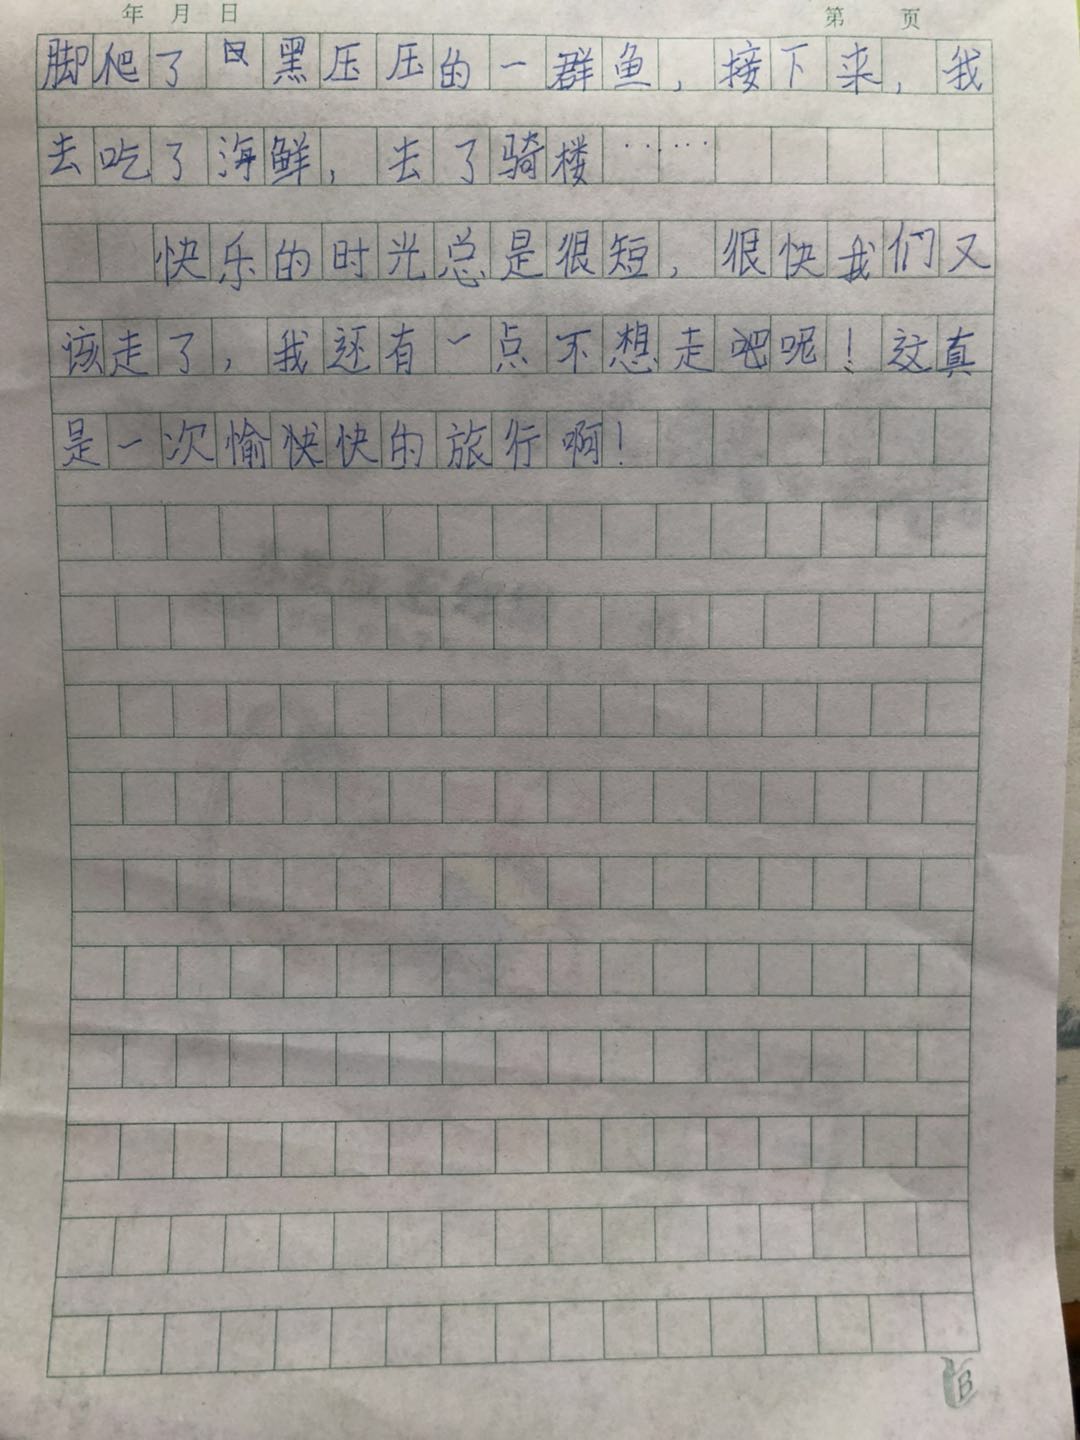 年 月 日 第 页
脚爬了 黑压压的一群鱼，接下来，我
去吃了海鲜，去了骑楼……
快乐的时光总是很短，很快我们又
该走了，我还有一点不想走吧呢！这真
是一次愉快快的旅行啊！
B